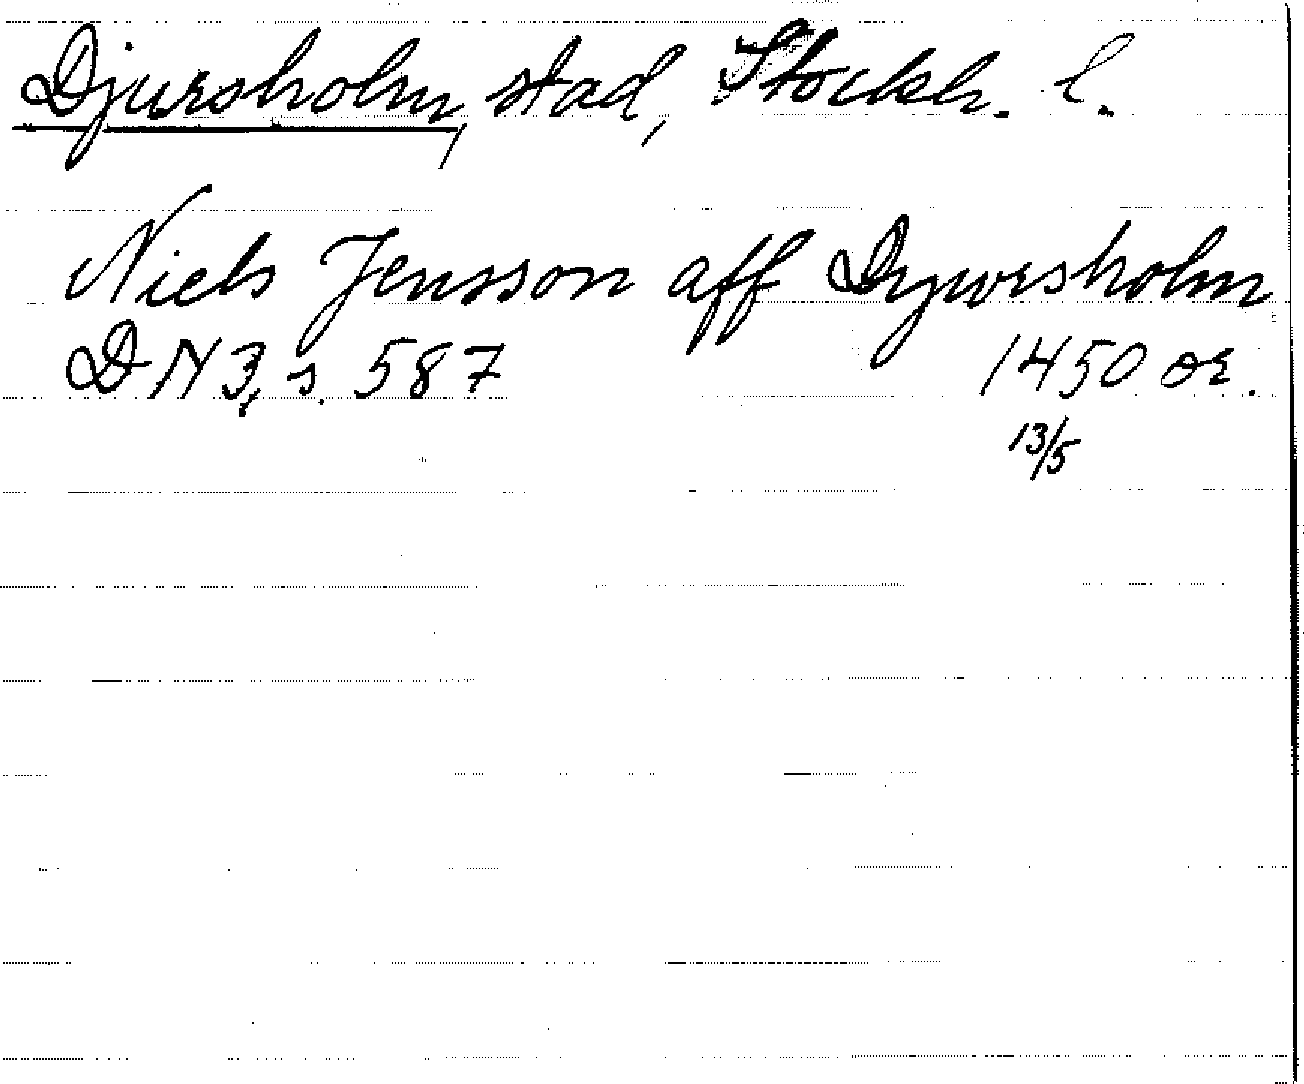 Djursholm, stad, Stockh. l.
Niels Jensson aff Dywrsholm
DN 3, s. 587 1450 or.
13/5